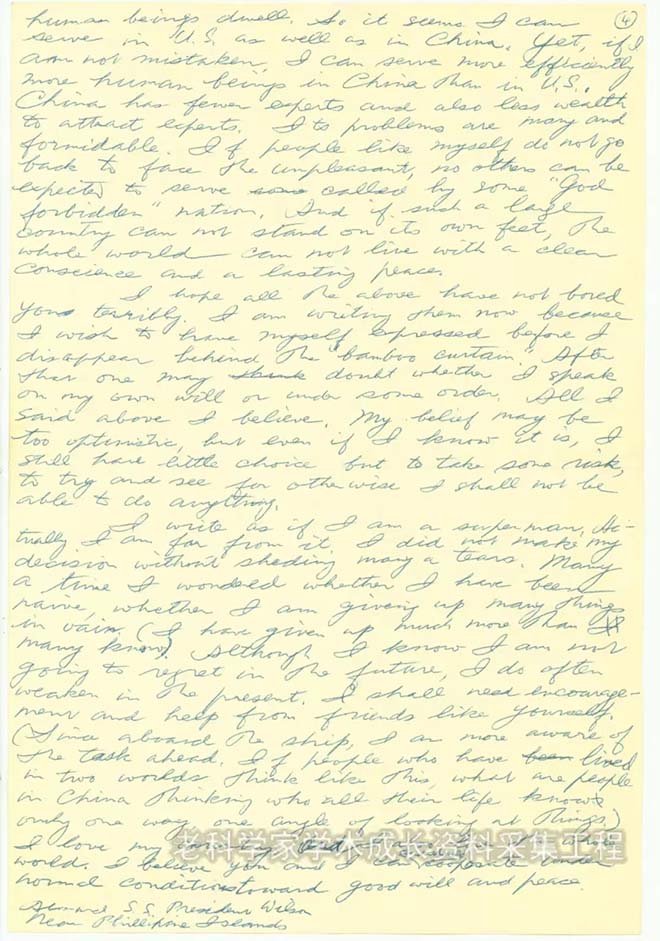 human beings dwell. So it seems I can
④
serve in U.S. as well as in China. Yet, if I
am not mistaken, I can serve more efficiently
more human beings in China than in U.S..
China has fewer experts and also less wealth
to attract experts. Its problems are many and
formidable. If people like myself do not go
back to face the unpleasant, no others can be
expected to serve called by some "God
forbidden" nation. And if such a large
country can not stand on its own feet, the
whole world can not live with a clean
conscience and a lasting peace.
I hope all the above have not bored
you terribly. I am writing them now because
I wish to have myself expressed before I
disappear behind the "bamboo curtain." After
that one may think doubt whether I speak
on my own will or under some order. All I
said above I believe. My belief may be
too optimistic, but even if I know it is, I
still have little choice but to take some risk,
to try and see for otherwise I shall not be
able to do anything.
I write as if I am a superman. Ac-
tually I am far from it. I did not make my
decision without sheding many a tears. Many
a time I wondered whether I have been
naive, whether I am giving up many things
in vain. (I have given up much more than
many know) Although I know I am not
going to regret in the future, I do often
weaken in the present. I shall need encourage-
ment and help from friends like yourself.
(Since aboard the ship, I am more aware of
the task ahead. If people who have been lived
in two worlds think like this, what are people
in China thinking who all their life knows
only one way, one angle of looking at things.)
I love my country as a part of the whole
world. I believe you and I can cooperate under
normal conditions toward good will and peace.
Aboard S.S. President Wilson
Near Phillipine Islands
老科学家学术成长资料采集工程